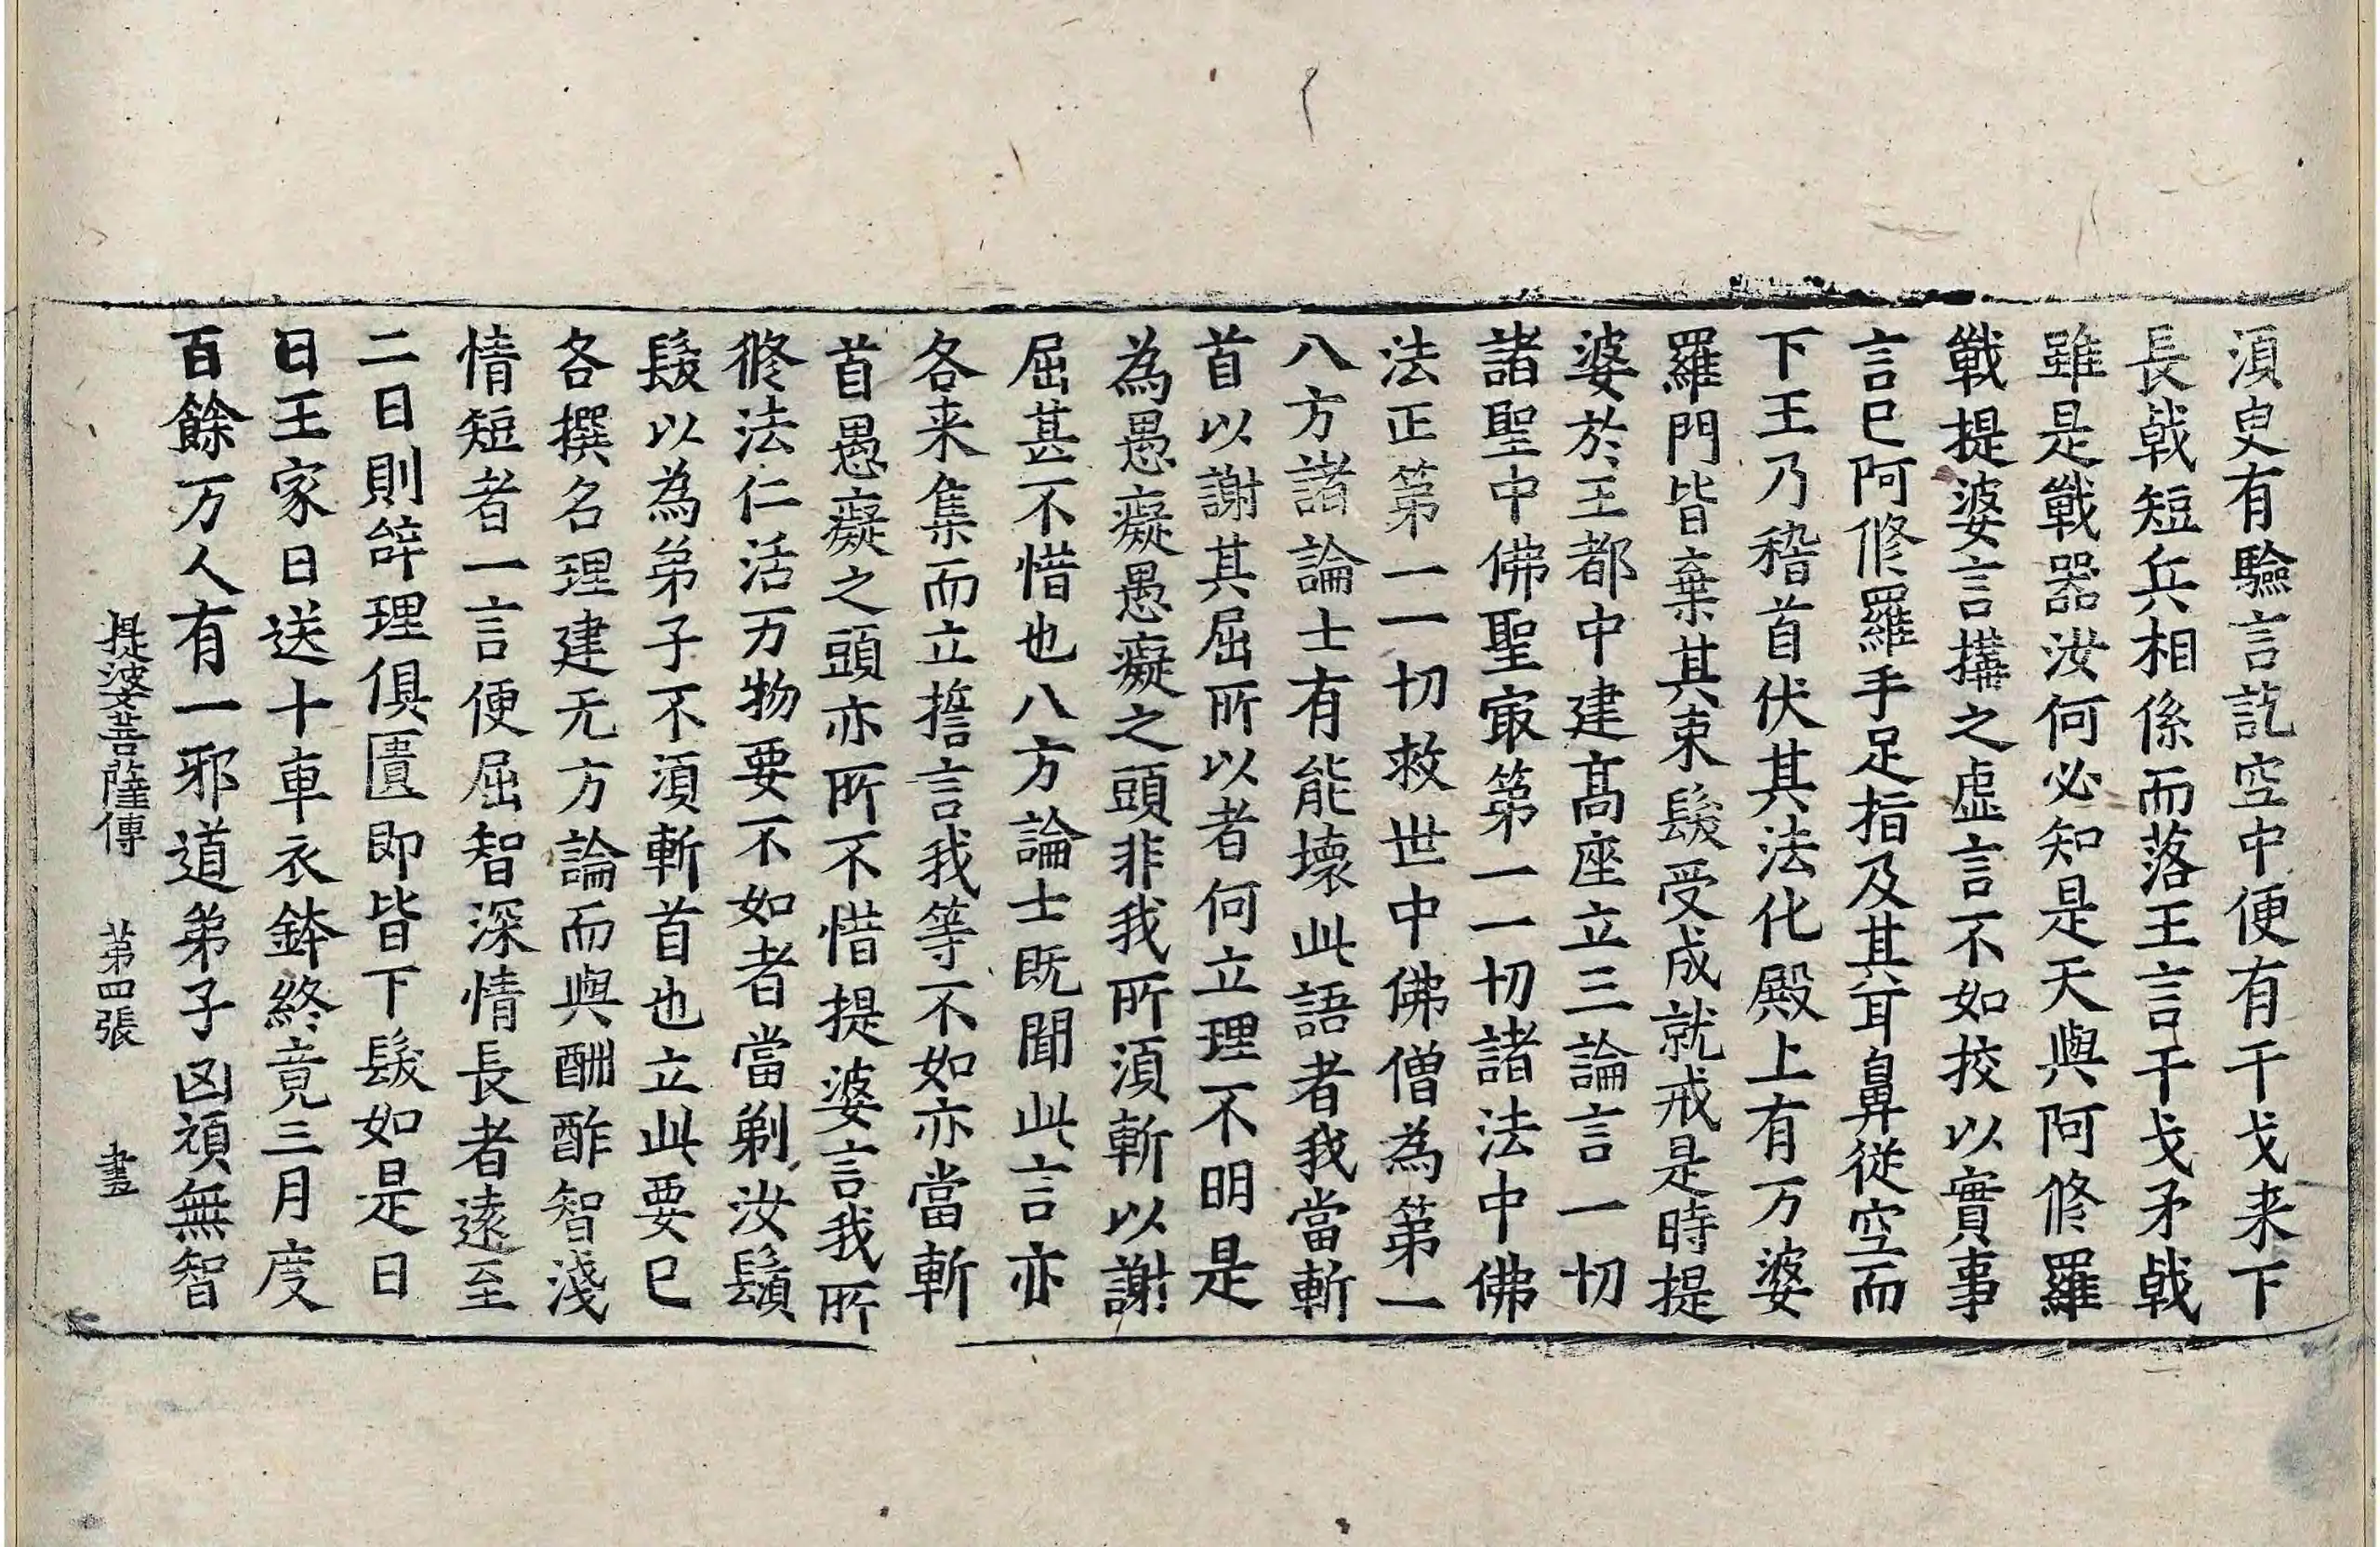 湏臾有驗言訖空中便有干戈来下
長戟短兵相係而落王言干戈矛戟
雖是戰器汝何必知是天與阿修羅
戰提婆言搆之虛言不如挍以實事
言已阿修羅手足指及其耳鼻從空而
下王乃稽首伏其法化殿上有万婆
羅門皆棄其束髮受成就戒是時提
婆於王都中建髙座立三論言一切
諸聖中佛聖冣第一一切諸法中佛
法正第一一切救世中佛僧為第一
八方諸論士有能壞此語者我當斬
首以謝其屈所以者何立理不明是
為愚癡愚癡之頭非我所湏斬以謝
屈甚不惜也八方論士既聞此言亦
各来集而立誓言我等不如亦當斬
首愚癡之頭亦所不惜提婆言我所
修法仁活万物要不如者當剃汝鬚
髮以為弟子不湏斬首也立此要已
各撰名理建无方論而與酬酢智淺
情短者一言便屈智深情長者遠至
二日則辝理俱匱即皆下髮如是日
日王家日送十車衣鉢終竟三月度
百餘万人有一邪道弟子凶頑無智
提婆菩薩傳 第四張 畫